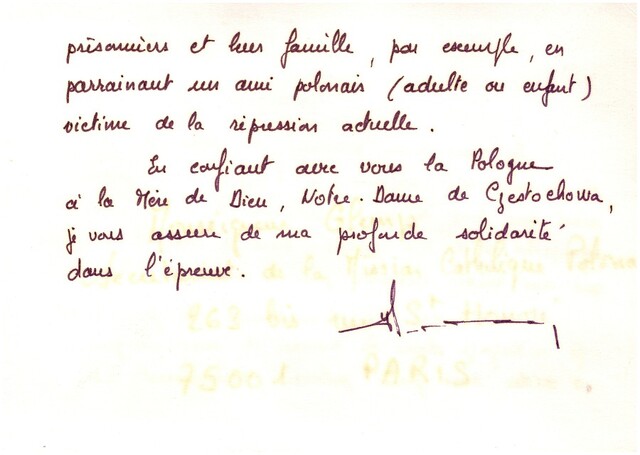 prisonniers et leur famille, par exemple, en
parrainant un ami polonais (adulte ou enfant)
victime de la répression actuelle.
En confiant avec vous la Pologne
à la Mère de Dieu, Notre-Dame de Czestochowa,
je vous assure de ma profonde solidarité
dans l'épreuve.
de la Mission Catholique
263 bis rue St Honoré
75001 PARIS